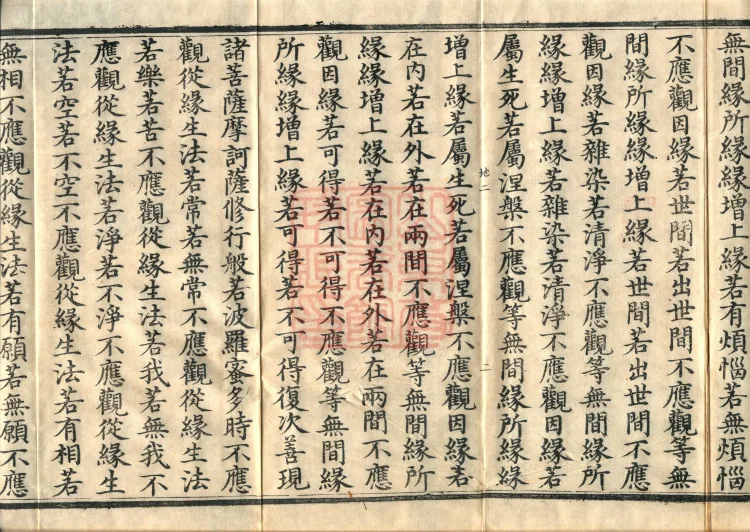 無間緣所緣緣增上緣若有煩惱若無煩惱
不應觀因緣若世間若出世間不應觀等無
間緣所緣緣增上緣若世間若出世間不應
觀因緣若雜染若清淨不應觀等無間緣所
緣緣增上緣若雜染若清淨不應觀因緣若
屬生死若屬涅槃不應觀等無間緣所緣緣
地二 二
增上緣若屬生死若屬涅槃不應觀因緣若
在內若在外若在兩間不應觀等無間緣所
緣緣增上緣若在內若在外若在兩間不應
觀因緣若可得若不可得不應觀等無間緣
所緣緣增上緣若可得若不可得復次善現
諸菩薩摩訶薩修行般若波羅蜜多時不應
觀從緣生法若常若無常不應觀從緣生法
若樂若苦不應觀從緣生法若我若無我不
應觀從緣生法若淨若不淨不應觀從緣生
法若空若不空不應觀從緣生法若有相若
無相不應觀從緣生法若有願若無願不應